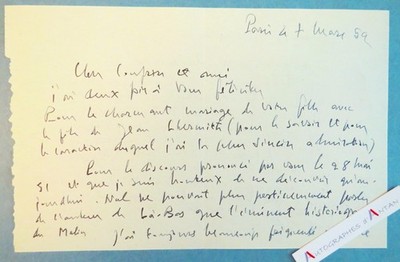 Paris le 7 Mars 52
Cher Confrère et ami
j'ai deux fois à vous féliciter
Pour le charmant mariage de votre fille avec
le fils de Jean Lhermitte (pour le savoir et pour
le caractère duquel j'ai la plus sincère admiration)
Pour le discours prononcé par vous le 28 mai
51 et que je suis honteux de ne découvrir qu'au-
jourd'hui. Nul ne pouvait plus pertinemment parler
de l'auteur de Là-Bas que l'éminent historiographe
du Malin j'ai toujours beaucoup
AUTOGRAPHES D'ANTAN